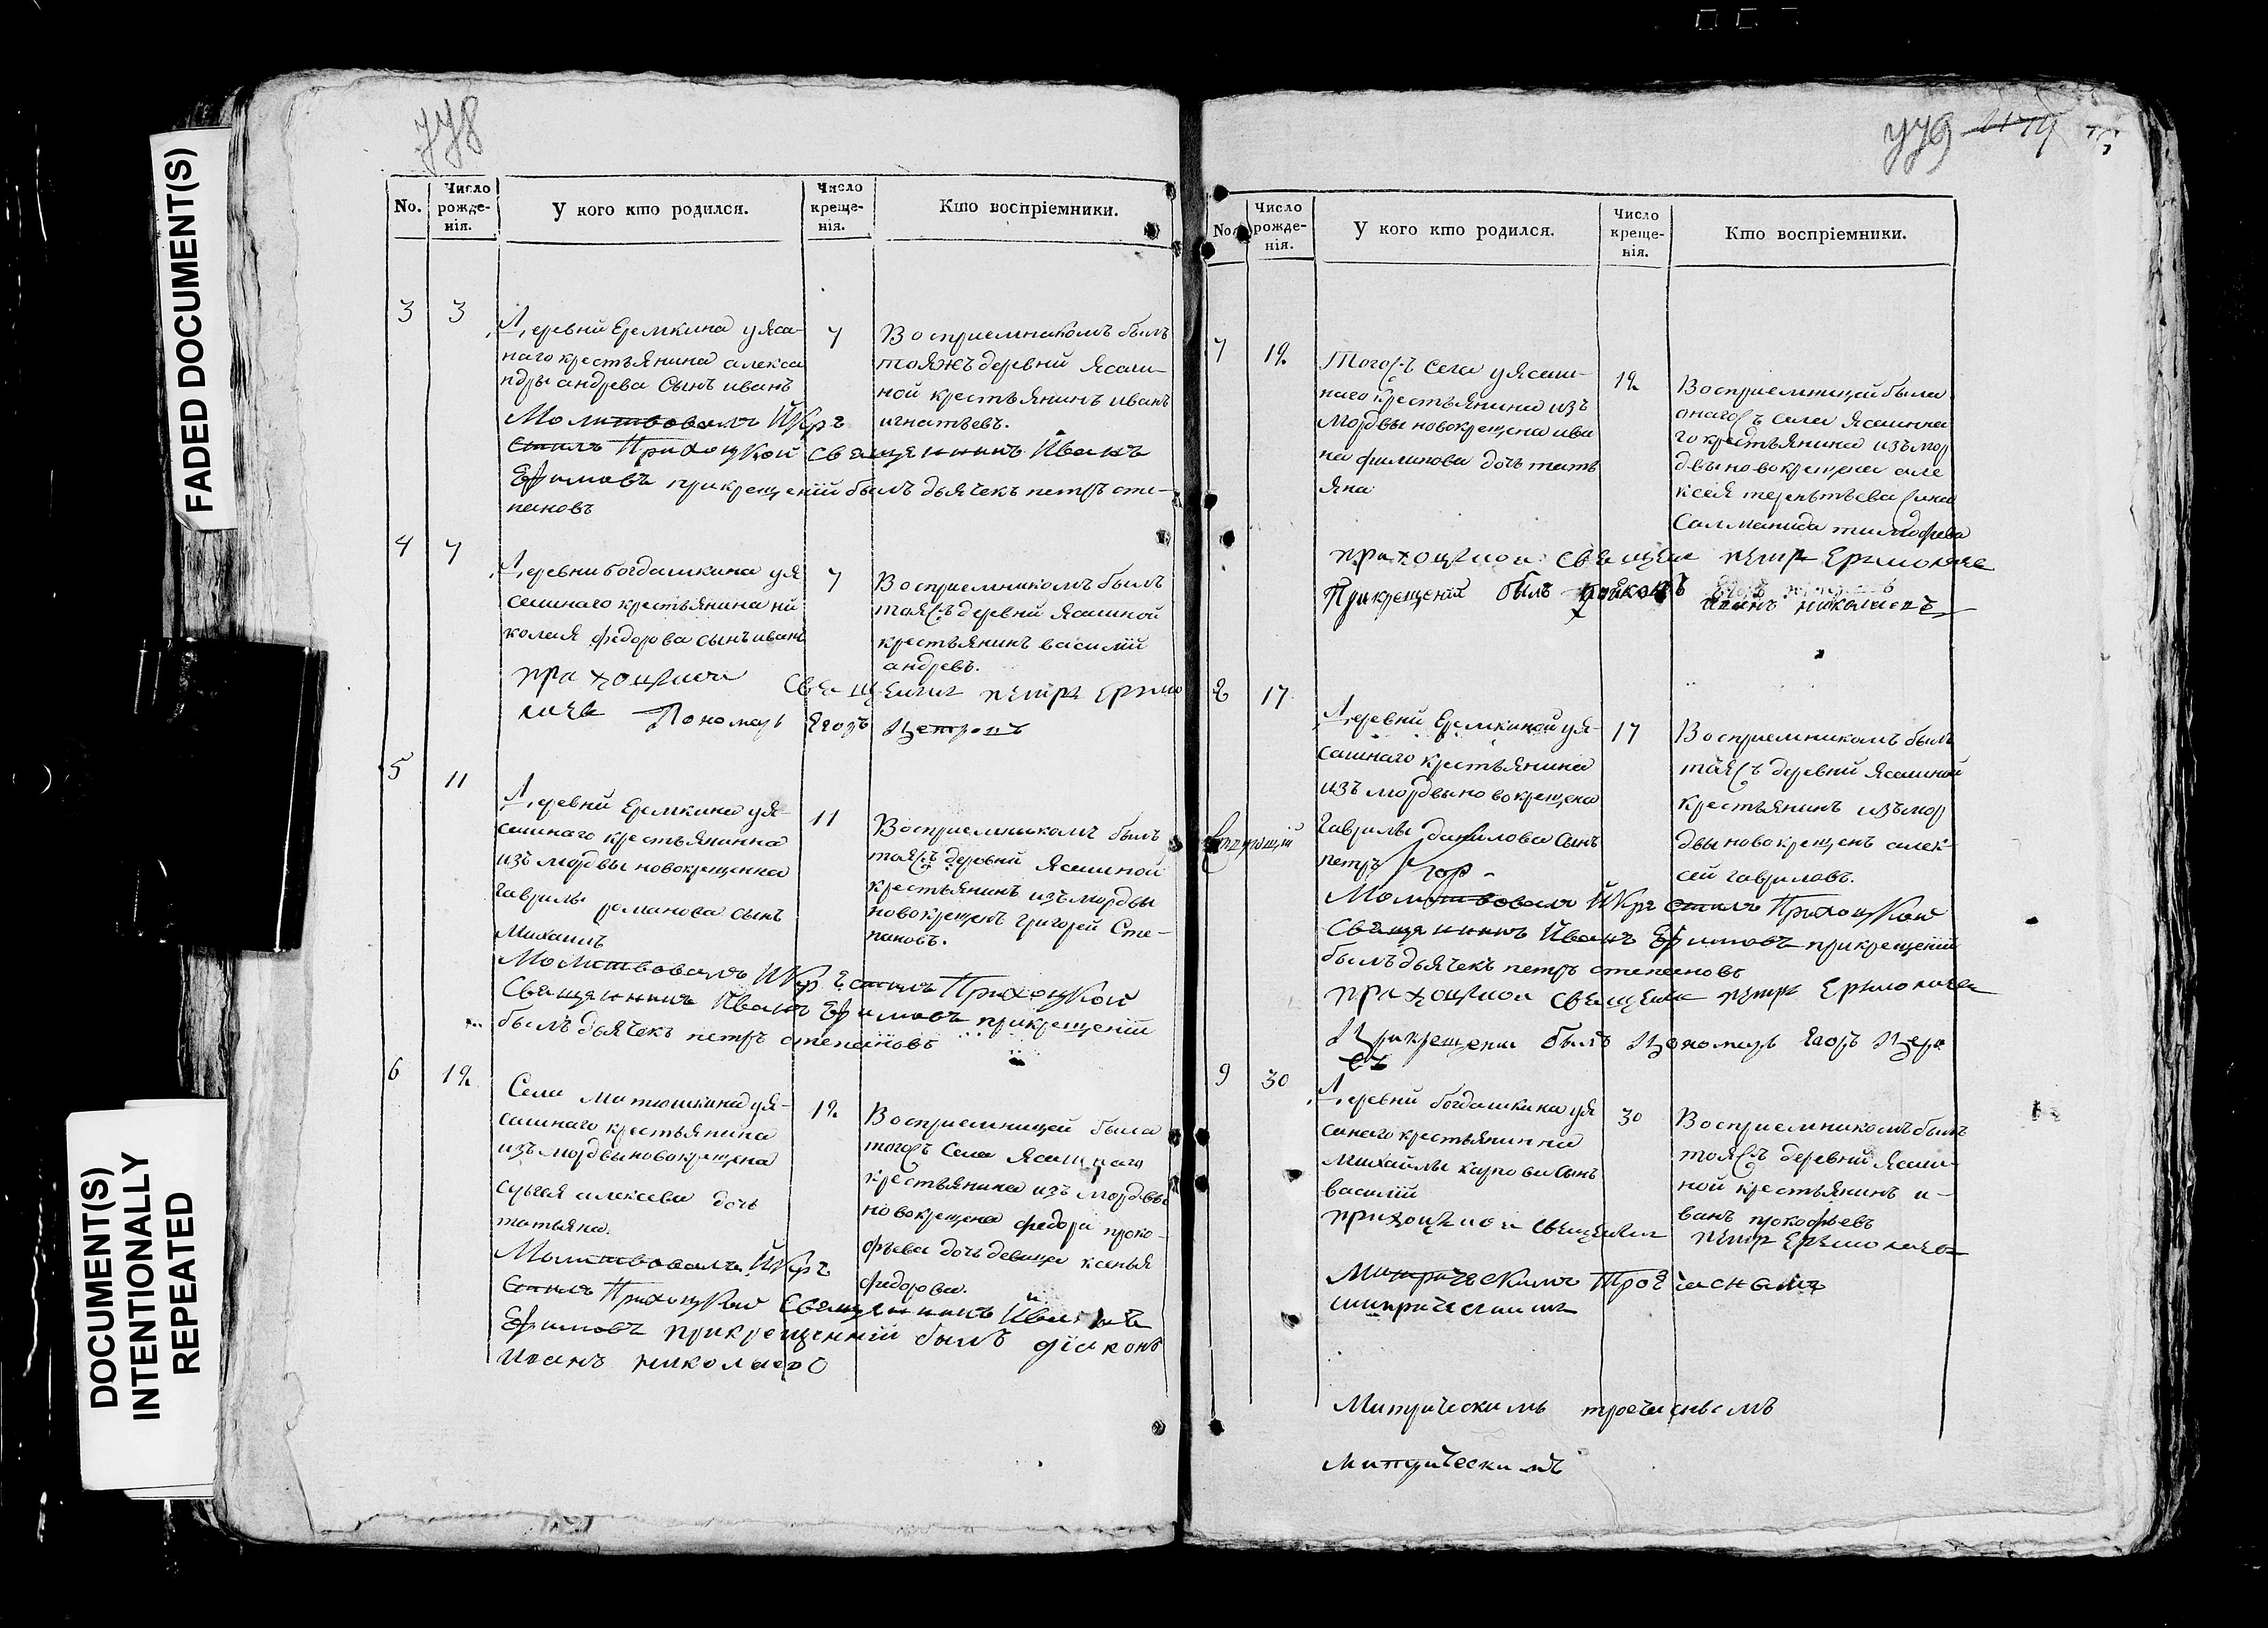 FADED DOCUMENT(S)
DOCUMENT(S)
INTENTIONALLY
REPEATED
778
No.
Число рожде-нія.
У кого кто родился.
Число креще-нія.
Кто воспріемники.
3
3
Деревни Еремкина у яса-
наго крестьянина алекса
ндры андрева сынъ иванъ
7
Восприемникомъ былъ
тояжъ деревни Ясаш-
ной крестьянинъ иванъ
игнатьевъ.
Молитвовалъ И Кре
стилъ Приходцкой священникъ Иванъ
Ефимовъ прикрещении былъ дьячекъ петръ сте-
пановъ
4
7
Деревни богдашкина у я
сашнаго крестьянина ни
колая федорова сынъ иванъ
7
Восприемникомъ былъ
тояжъ деревни Ясашной
крестьянинъ василий
андревъ.
приходцкои свещеник петръ Ермо
лаев Пономарь Егоръ Петровъ
5
11
Деревни Еремкина у я-
сашнаго крестьянина
изъ мордвы новокрещенна
гаврилы романова сынъ
Михаилъ
11
Восприемникомъ былъ
тояжъ деревни Ясашной
крестьянинъ изъ мордвы
новокрещенъ григорей Сте-
пановъ.
Молитвовалъ И Крестилъ Приходцкой
Священникъ Иванъ Ефимовъ прикрещении
былъ дьячекъ петръ степановъ
6
12
Села матюшкина у я-
сашнаго крестьянина
изъ мордвы новокрещена
сергея алексева дочь
татьяна.
12
Восприемницей была
тогожъ Села Ясашнаго
крестьянина изъ мордвы
новокрещена федора проко-
фьева дочь девица ксенья
федорова.
Молитвовалъ И Кре
стилъ Приходцкой Священникъ Иванъ
Ефимовъ прикрещении былъ діаконъ
Иванъ николаево
779
No.
Число рожде-нія.
У кого кто родился.
Число креще-нія.
Кто воспріемники.
7
12
Тогожъ села у Ясаш-
наго крестьянина изъ
Мордвы новокрещена ива
на филипова дочь тать
яна
12
Восприемницей была
онагожъ села Ясашна
го крестьянина изъ мор
двы новокрещена але
ксея терентьева жена
Саламанида тимофева
приходцкои свещеник петръ Ермолаев
Прикрещении былъ диаконъ
Иванъ николаевъ
8
17
Деревни Еремкиной у я-
сашнаго крестьянина
изъ мордвы новокрещена
гаврилы данилова сынъ
петръ
17
Восприемникомъ былъ
тояжъ деревни Ясашной
крестьянинъ изъ мор
двы новокрещенъ алек-
сей гавриловъ.
Молитвовалъ И Крестилъ Приходцкой
Священникъ Иванъ Ефимовъ прикрещении
былъ дьячекъ петръ степановъ
приходцкои свещеник петръ Ермолаев
Прикрещении былъ Пономарь Егоръ Петро
въ
9
30
Деревни богдашкина у я
санаго крестьянина
Михайлы карпова сынъ
василий
30
Восприемникомъ былъ
тояжъ деревни Ясаш-
ной крестьянинъ и-
ванъ прокофьевъ
приходцкои свещеник петръ Ермолаев